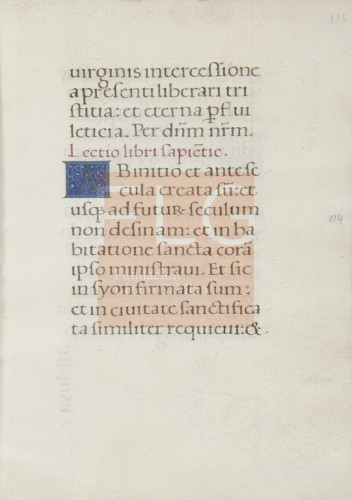 116
uirginis intercessione
a presenti liberari tri
stitia: et eterna ꝑfrui
leticia. Per dn̄m nr̄m.
Lectio libri sapiētie.
AB initio et ante se
cula creata sū: et
usq; ad futuꝝ seculum
non desinam: et in ha
bitatione sancta corā
ipso ministraui. Et sic
in syon firmata sum:
et in ciuitate sanctifica
ta similiter requieui: &
114
FLG